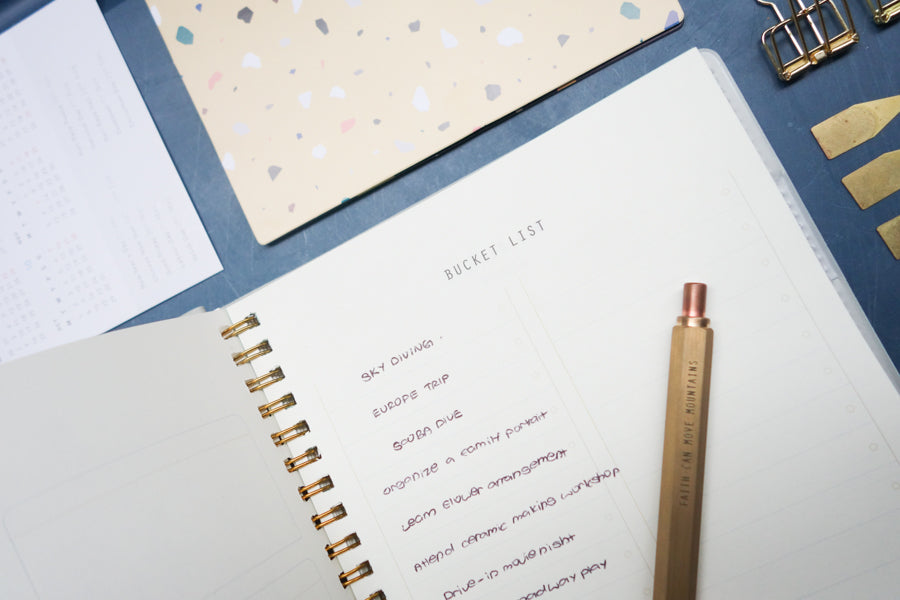 BUCKET LIST
SKY DIVING.
EUROPE TRIP
SCUBA DIVE
organize a family portrait
Learn flower arrangement
Attend ceramic making workshop
Drive-in movie night
play
FAITH CAN MOVE MOUNTAINS